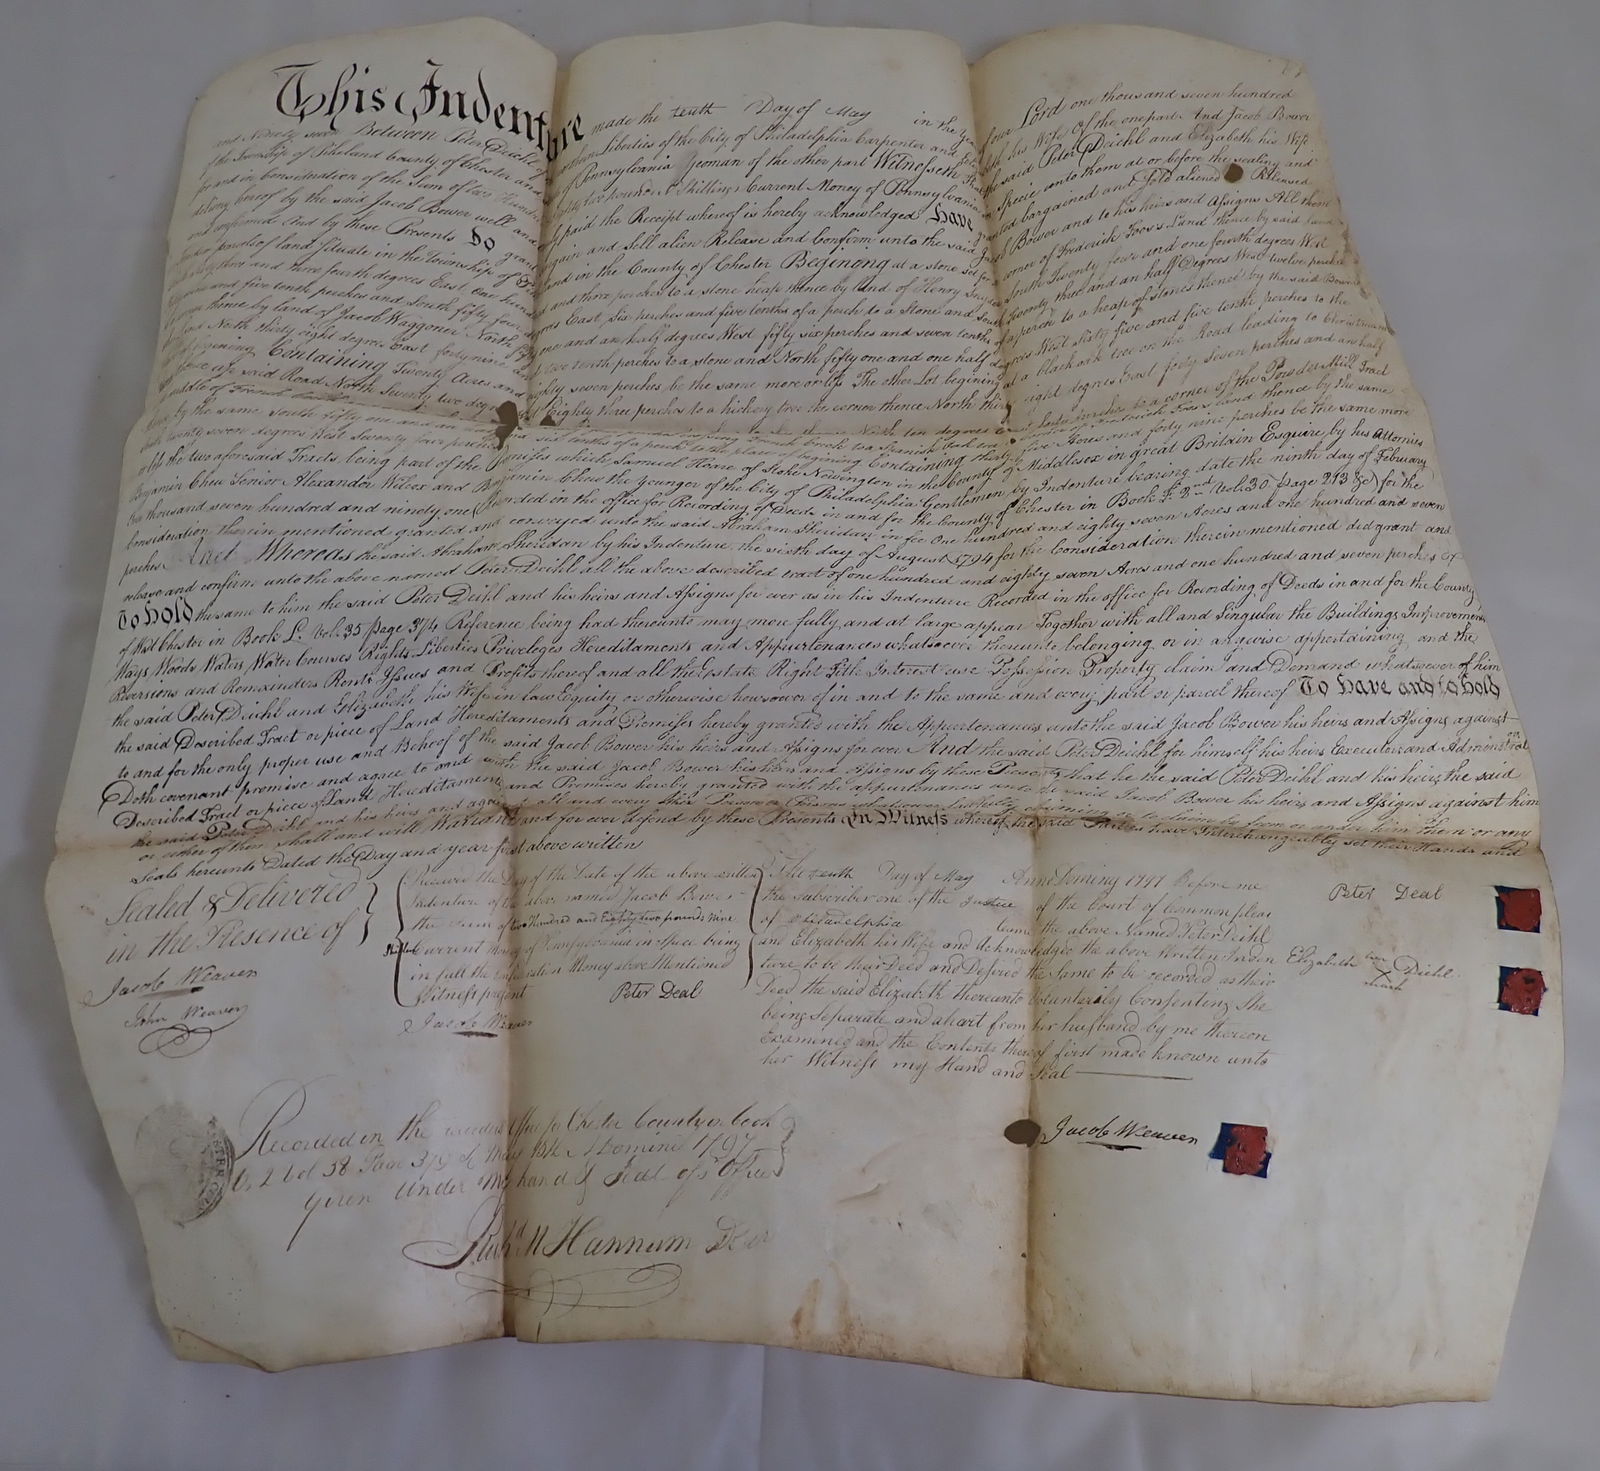 This Indenture made the tenth Day of May in the Year of our Lord one thousand and seven hundred
and Ninety seven Between Peter Diehl of the Northern Liberties of the City of Philadelphia Carpenter and Elizabeth his Wife Of the one part And Jacob Bower
of the Township of Pikeland County of Chester and of Pennsylvania Yeoman of the other part Witnesseth That the said Peter Diehl and Elizabeth his Wife
for and in consideration of the Sum of two Hundred Eighty two pounds Shillings Current Money of Pennsylvania in Specie unto them at or before the sealing and
delivery hereof by the said Jacob Bower well and paid the Receipt whereof is hereby acknowledged Have granted bargained and Sold aliened Released
and confirmed And by these Presents Do grant bargain and Sell alien Release and Confirm unto the said Jacob Bower and to his heirs and Assigns All those
parcels of land Situate in the Township of and in the County of Chester Begining at a stone set for a corner of Frederick Foos's Land thence by said land
three and three fourth degrees East one hundred and three perches to a stone heap thence by land of Henry Snyder South Twenty four and one fourth degrees West
and five tenth perches and South fifty four degrees East, Six perches and five tenths of a perch to a Stone and South Twenty three and an half Degrees West twelve perches
thence by land of Jacob Waggoner North one and an half degrees West fifty six perches and seven tenths of a perch to a heap of stones thence by the said Bowers
land North thirty eight degrees East forty nine and two tenth perches to a stone and North fifty one and one half degrees West Sixty five and five tenth perches to the
begining Containing Twenty Acres and eighty seven perches be the same more or less The other Lot begining at a black oak tree on the Road leading to
up said Road North Seventy two degrees Eighty three perches to a hickory tree the corner thence North thirty eight degrees East forty seven perches and an half
middle of French thence North ten degrees perches to a corner of the Powder Mill Tract
thence by the same South fifty one and an half six tenths of a perch to the place of begining Containing thirty five Acres and forty nine perches be the same more
or less the two aforesaid Tracts being part of the Premises which Samuel Hoare of Stoke Newington in the County of Middlesex in great Britain Esquire by his Attornies
Benjamin Chew Senior Alexander Wilcox and Benjamin Chew the younger of the City of Philadelphia Gentlemen by Indenture bearing date the ninth day of February
one thousand seven hundred and ninety one (Recorded in the office for Recording of Deeds in and for the County of Chester in Book F. 2nd Vol. 30 Page 213 &c) for the
Consideration therein mentioned granted and conveyed unto the said Abraham Sheridan in fee One hundred and eighty seven Acres and one hundred and seven
perches And Whereas the said Abraham Sheridan by his Indenture the sixth day of August 1794 for the Consideration therein mentioned did grant and
release and confirm unto the above named Peter Deihl all the above described tract of one hundred and eighty seven Acres and one hundred and seven perches
To hold the same to him the said Peter Deihl and his heirs and Assigns for ever as in his Indenture Recorded in the office for Recording of Deeds in and for the County
of West Chester in Book L. Vol: 35 Page 374 Reference being had thereunto may more fully and at large appear Together with all and Singular the Buildings Improvements
Ways Woods Waters Water Courses Rights Liberties Privileges Hereditaments and Appurtenances whatsoever thereunto belonging or in anywise appertaining and the
Reversions and Remainders Rents Issues and Profits thereof and all the Estate Right Title Interest use Possession Property claim and Demand whatsoever of him
the said Peter Diehl and Elizabeth his Wife in law Equity or otherwise howsoever of in and to the same and every part or parcel thereof To have and to hold
the said Described Tract or piece of Land Hereditaments and Premises hereby granted with the Appurtenances unto the said Jacob Bower his heirs and Assigns against
to and for the only proper use and Behoof of the said Jacob Bower his heirs and Assigns for ever And the said Peter Deihl for himself his heirs Executors and Administrators
Doth covenant promise and agree to and with the said Jacob Bower his heirs and Assigns by these Presents that he the said Peter Deihl and his heirs the said
Described Tract or piece of Land Hereditaments and Premises hereby granted with the appurtenances unto the said Jacob Bower his heirs and Assigns against him
he said Peter Deihl and his heirs and against all and every other Person or Persons whatsoever lawfully claiming or to claim by from or under him Them or any
or either of them shall and will Warrant and for ever Defend by these Presents In Witness whereof the said Parties have Interchangeably set their Hands and
Seals hereunto Dated the Day and year first above written
Sealed & Delivered
in the Presence of
Jacob Weaver
John Weaver
Received the Day of the Date of the above written
Indenture of the above named Jacob Bower
the Sum of two Hundred and Eighty two pounds nine
Current money of Pennsylvania in specie being
in full the Consideration Money above Mentioned
Witness present
Peter Deal
Jacob Weaver
The tenth Day of May Anno Domini 1797 Before me
the subscriber one of the Justice of the Court of Common pleas
of Philadelphia came the above Named Peter Diehl
and Elizabeth his Wife and Acknowledged the above Written Inden
ture to be their Deed and Desired the Same to be recorded as their
Deed the said Elizabeth thereunto Voluntarily Consenting She
being Separate and apart from her husband by me thereon
Examened and the Contents thereof first made known unto
her Witness my Hand and Seal
Jacob Weaver
Peter Deal
Elizabeth her X mark Diehl
Recorded in the recorders Office for Chester County in book
Vol 38 Page 379 May Domini 1797
Given Under My hand & Seal of sd Office
Richd. M Hannum Dr